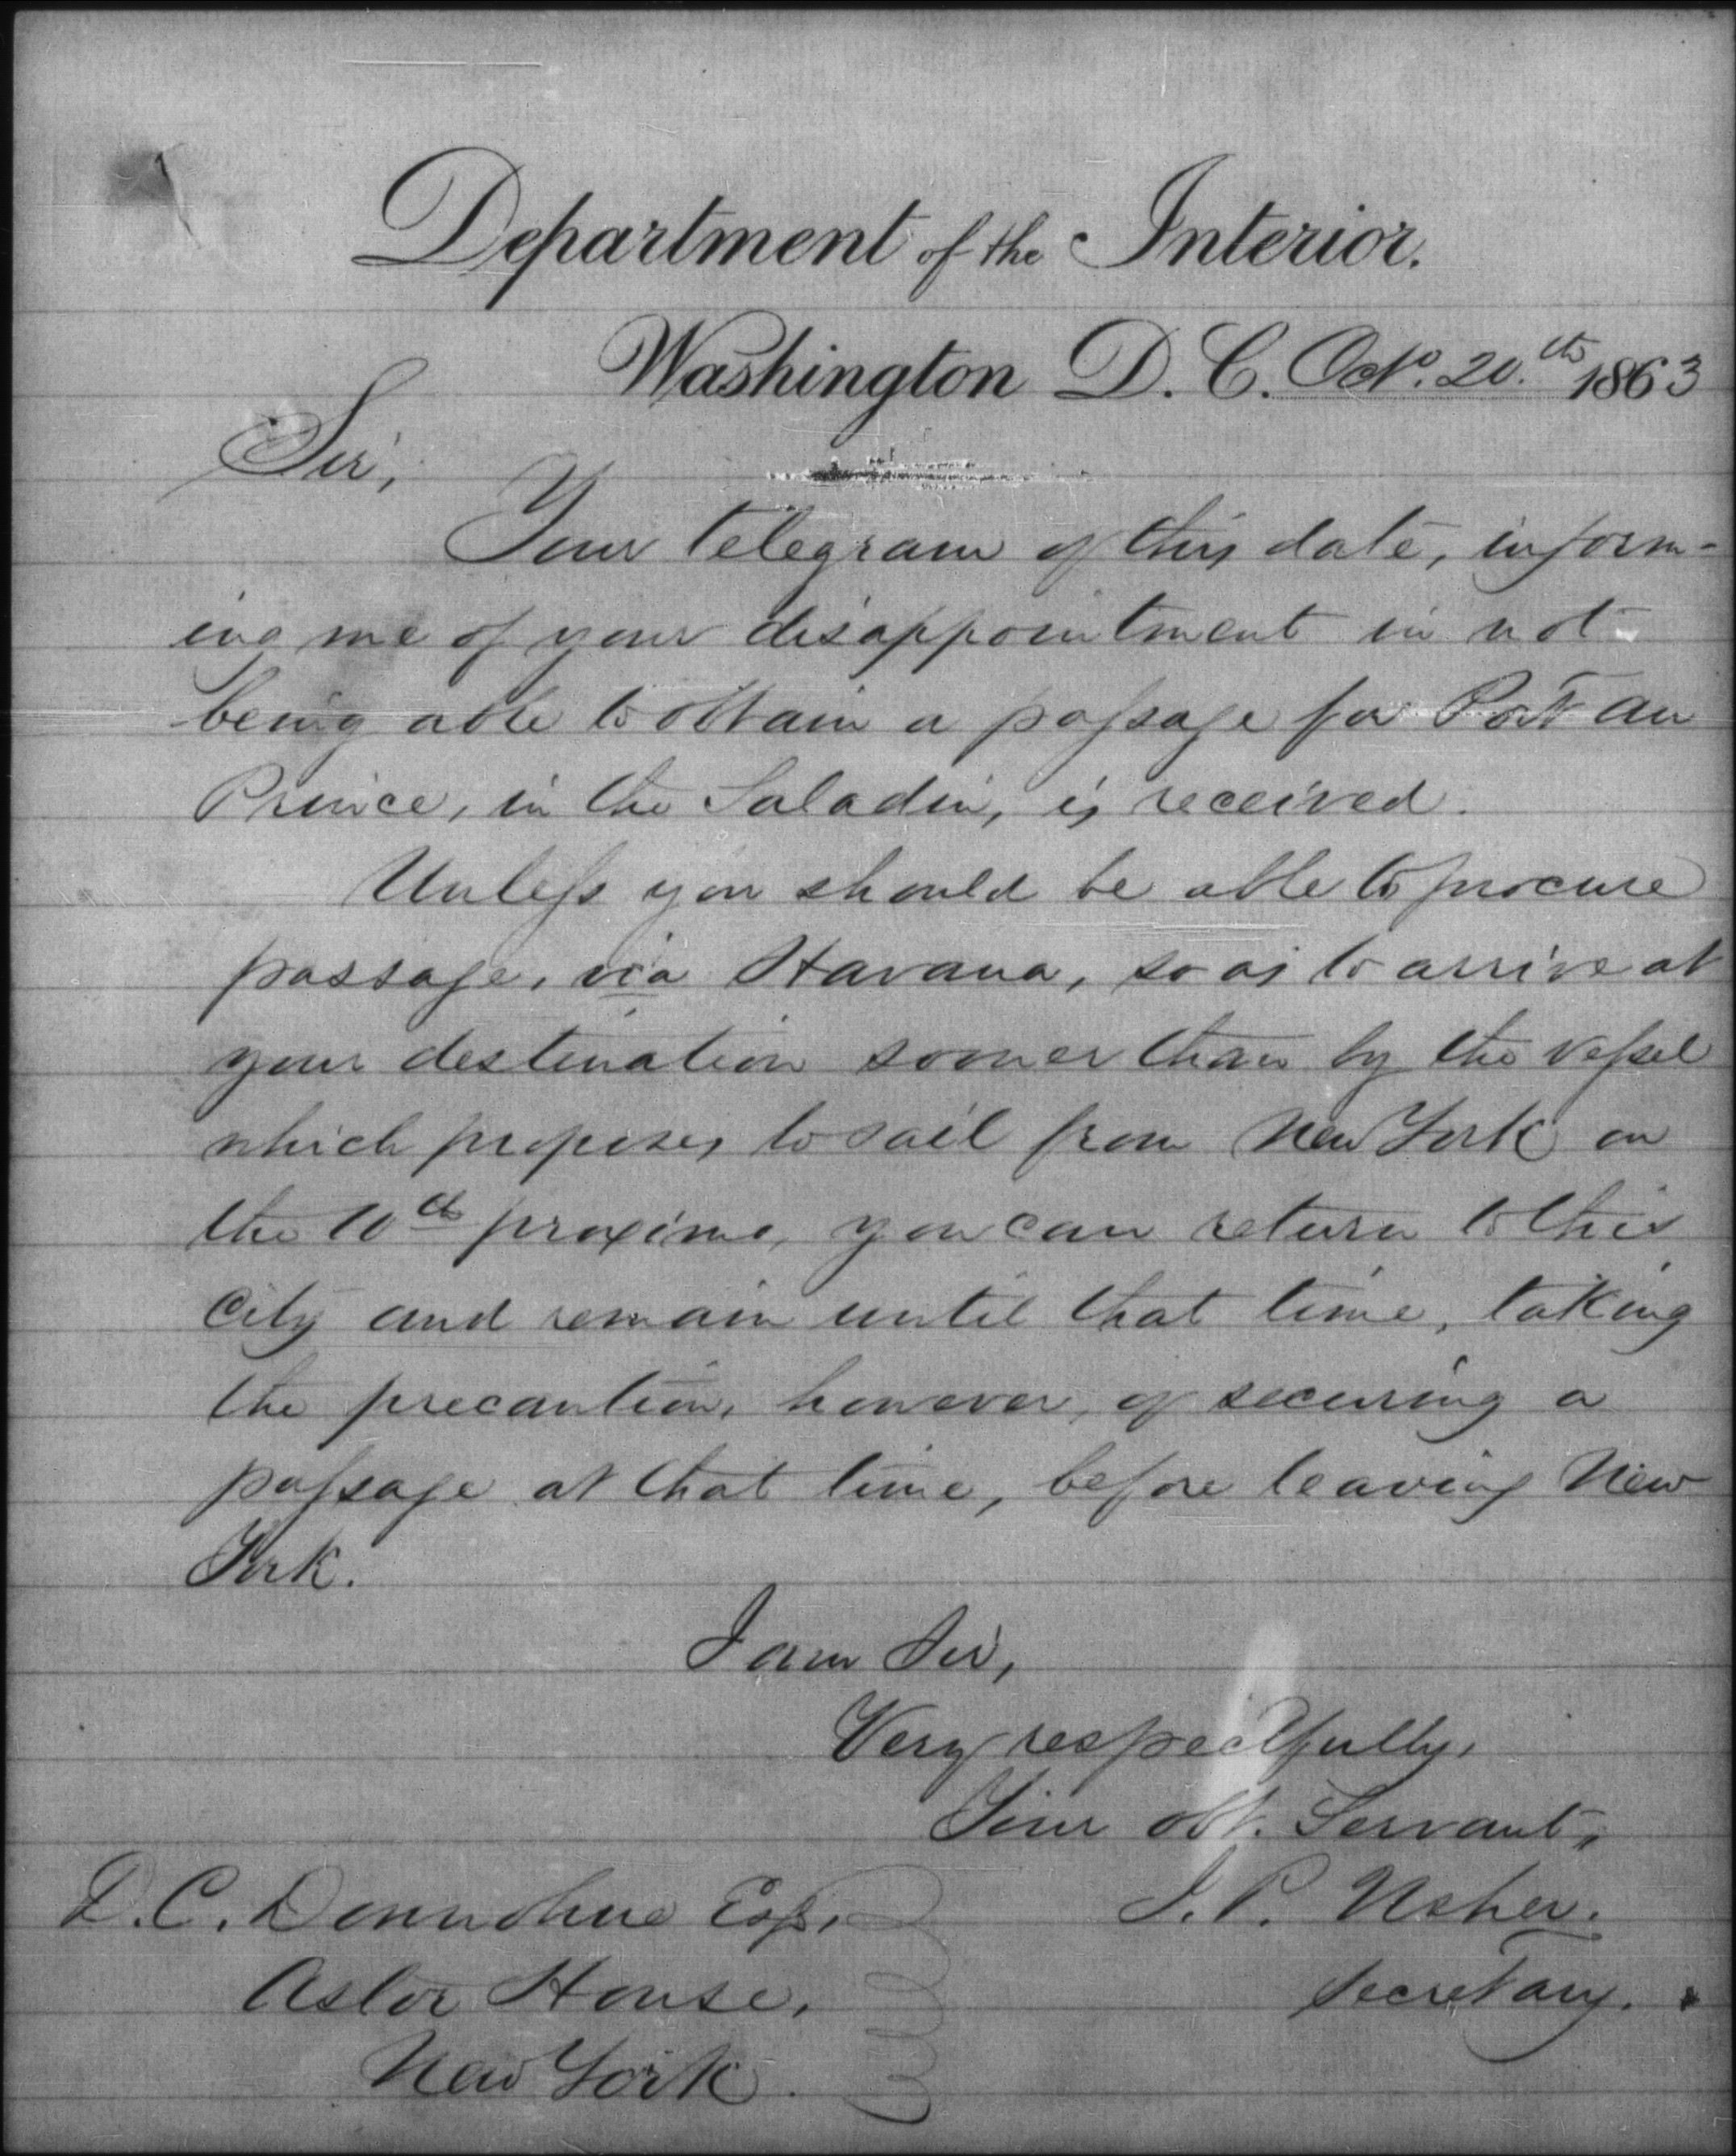 Department of the Interior.
Washington D. C. Oct. 20.th 1863
Sir,
Your telegram of this date, inform-
ing me of your disappointment in not
being able to obtain a passage for Port au
Prince, in the Saladin, is received.
Unless you should be able to procure
passage, via Havana, so as to arrive at
your destination sooner than by the vessel
which proposes to sail from New York on
the 10th proximo, you can return to this
City and remain until that time, taking
the precaution, however, of securing a
passage at that time, before leaving New
York.
I am Sir,
Very respectfully,
Your obt. Servant,
J. P. Usher.
Secretary.
D. C. Donnohue Esq,
Astor House,
New York.